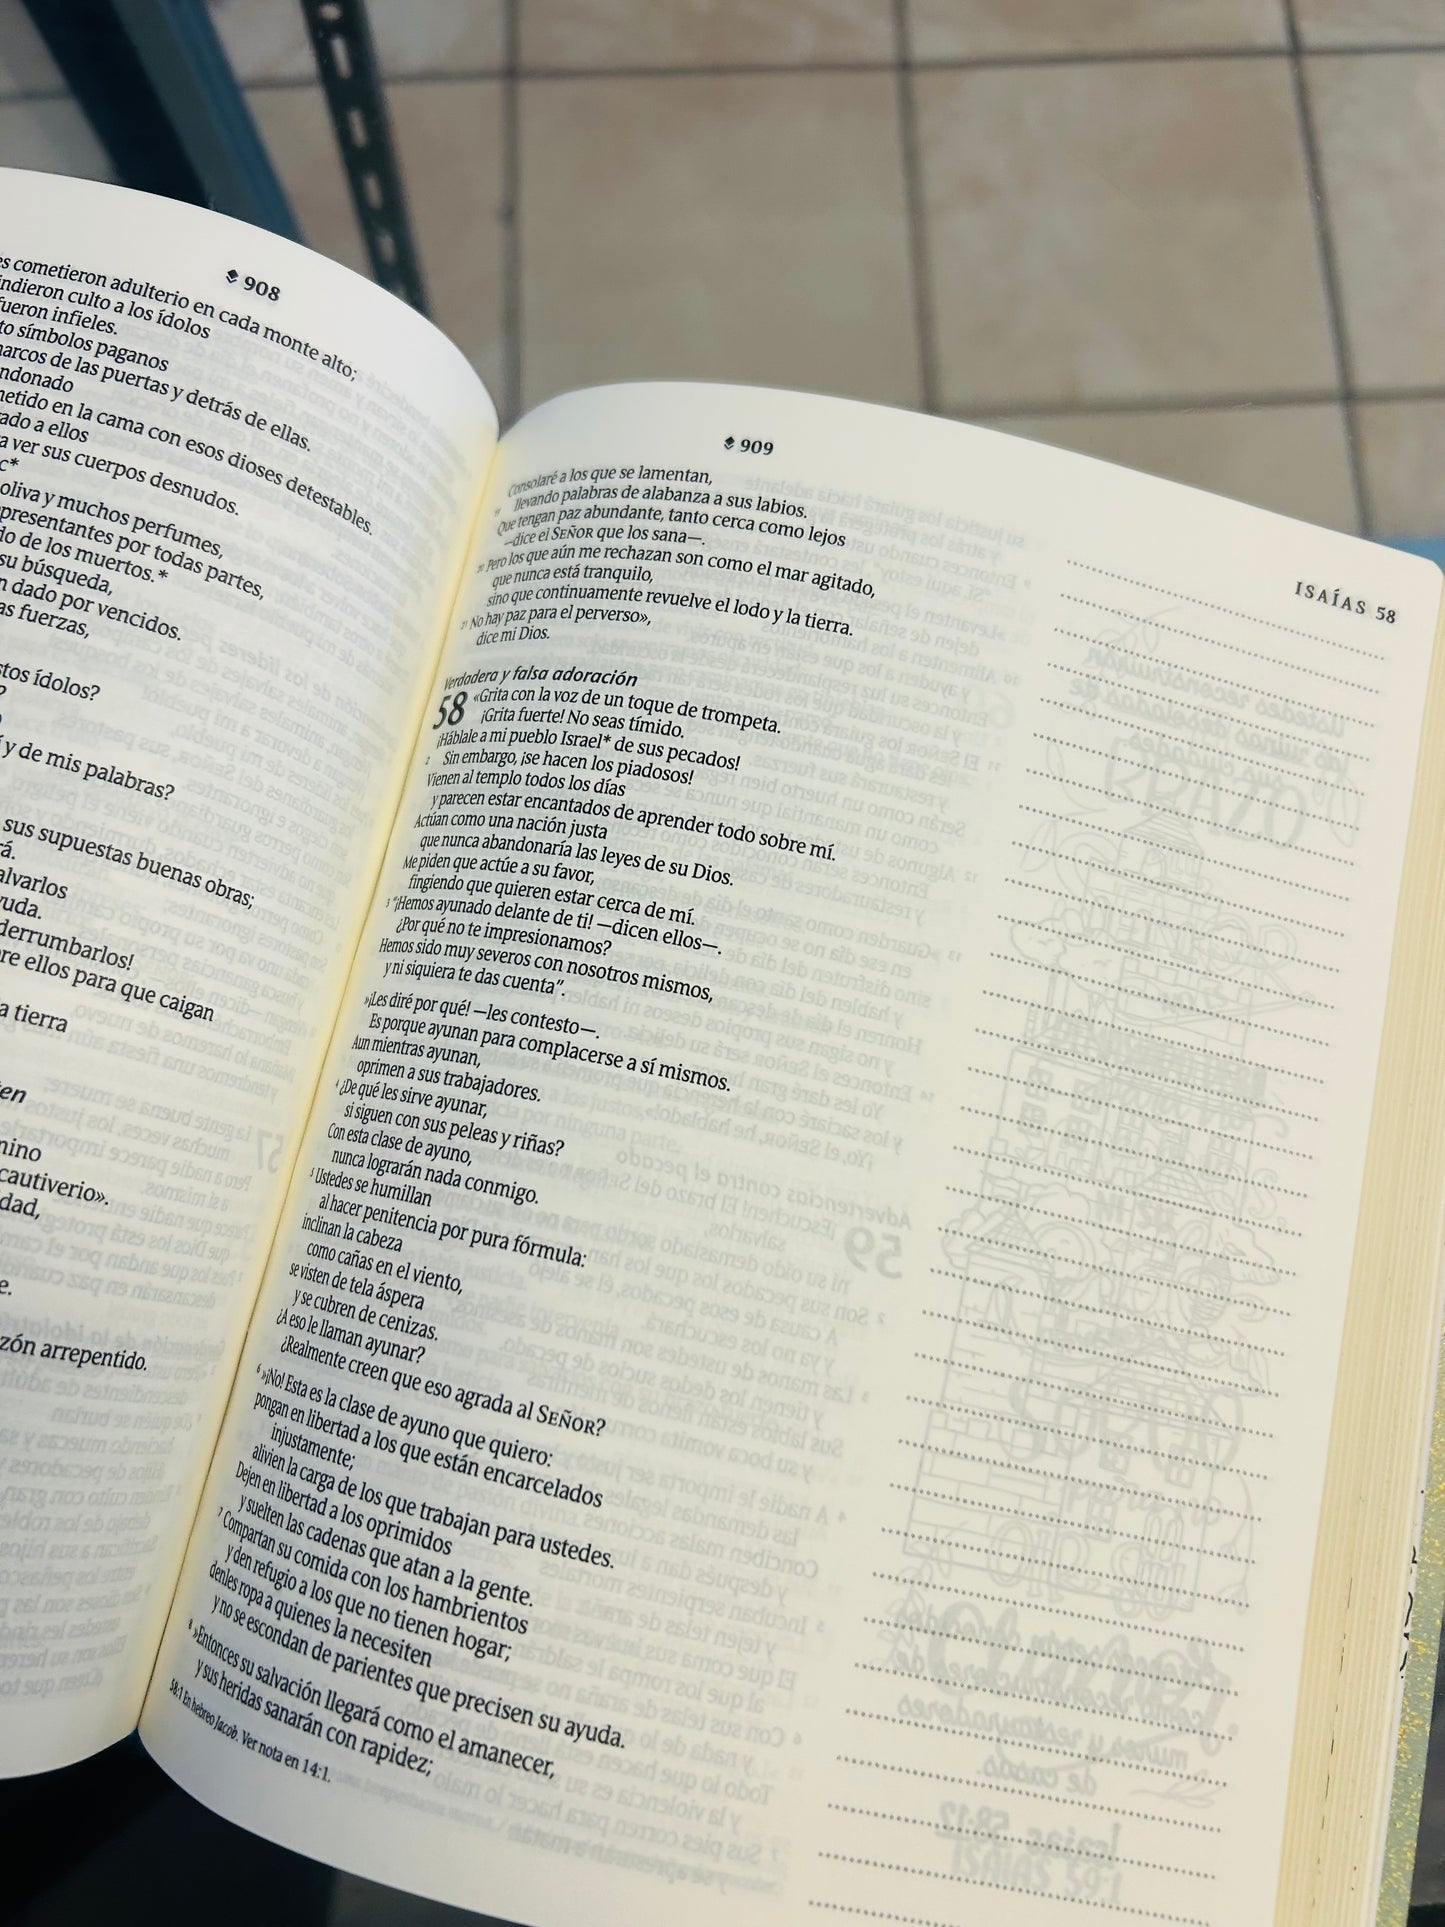 908
es cometieron adulterio en cada monte alto;
indieron culto a los ídolos
fueron infieles.
to símbolos paganos
marcos de las puertas y detrás de ellas.
ndonado
metido en la cama con esos dioses detestables.
ado a ellos
a ver sus cuerpos desnudos.
c*
oliva y muchos perfumes,
presentantes por todas partes,
do de los muertos.*
su búsqueda,
n dado por vencidos.
as fuerzas,
stos ídolos?
?
í y de mis palabras?
sus supuestas buenas obras;
rá.
alvarlos
yuda.
derrumbarlos!
re ellos para que caigan
a tierra
ten
mino
cautiverio».
dad,
e.
zón arrepentido.
909
ISAÍAS 58
Consolaré a los que se lamentan,
19 llevando palabras de alabanza a sus labios.
Que tengan paz abundante, tanto cerca como lejos
—dice el SEÑOR que los sana—.
20 Pero los que aún me rechazan son como el mar agitado,
que nunca está tranquilo,
sino que continuamente revuelve el lodo y la tierra.
21 No hay paz para el perverso»,
dice mi Dios.
Verdadera y falsa adoración
58 «Grita con la voz de un toque de trompeta.
¡Grita fuerte! No seas tímido.
¡Háblale a mi pueblo Israel* de sus pecados!
2 Sin embargo, ¡se hacen los piadosos!
Vienen al templo todos los días
y parecen estar encantados de aprender todo sobre mí.
Actúan como una nación justa
que nunca abandonaría las leyes de su Dios.
Me piden que actúe a su favor,
fingiendo que quieren estar cerca de mí.
3 “¡Hemos ayunado delante de ti! —dicen ellos—.
¿Por qué no te impresionamos?
Hemos sido muy severos con nosotros mismos,
y ni siquiera te das cuenta”.
»¡Les diré por qué! —les contesto—.
Es porque ayunan para complacerse a sí mismos.
Aun mientras ayunan,
oprimen a sus trabajadores.
4 ¿De qué les sirve ayunar,
si siguen con sus peleas y riñas?
Con esta clase de ayuno,
nunca lograrán nada conmigo.
5 Ustedes se humillan
al hacer penitencia por pura fórmula:
inclinan la cabeza
como cañas en el viento,
se visten de tela áspera
y se cubren de cenizas.
¿A eso le llaman ayunar?
¿Realmente creen que eso agrada al SEÑOR?
6 »¡No! Esta es la clase de ayuno que quiero:
pongan en libertad a los que están encarcelados
injustamente;
alivien la carga de los que trabajan para ustedes.
Dejen en libertad a los oprimidos
y suelten las cadenas que atan a la gente.
7 Compartan su comida con los hambrientos
y den refugio a los que no tienen hogar;
denles ropa a quienes la necesiten
y no se escondan de parientes que precisen su ayuda.
8 »Entonces su salvación llegará como el amanecer,
y sus heridas sanarán con rapidez;
58:1 En hebreo Jacob. Ver nota en 14:1.